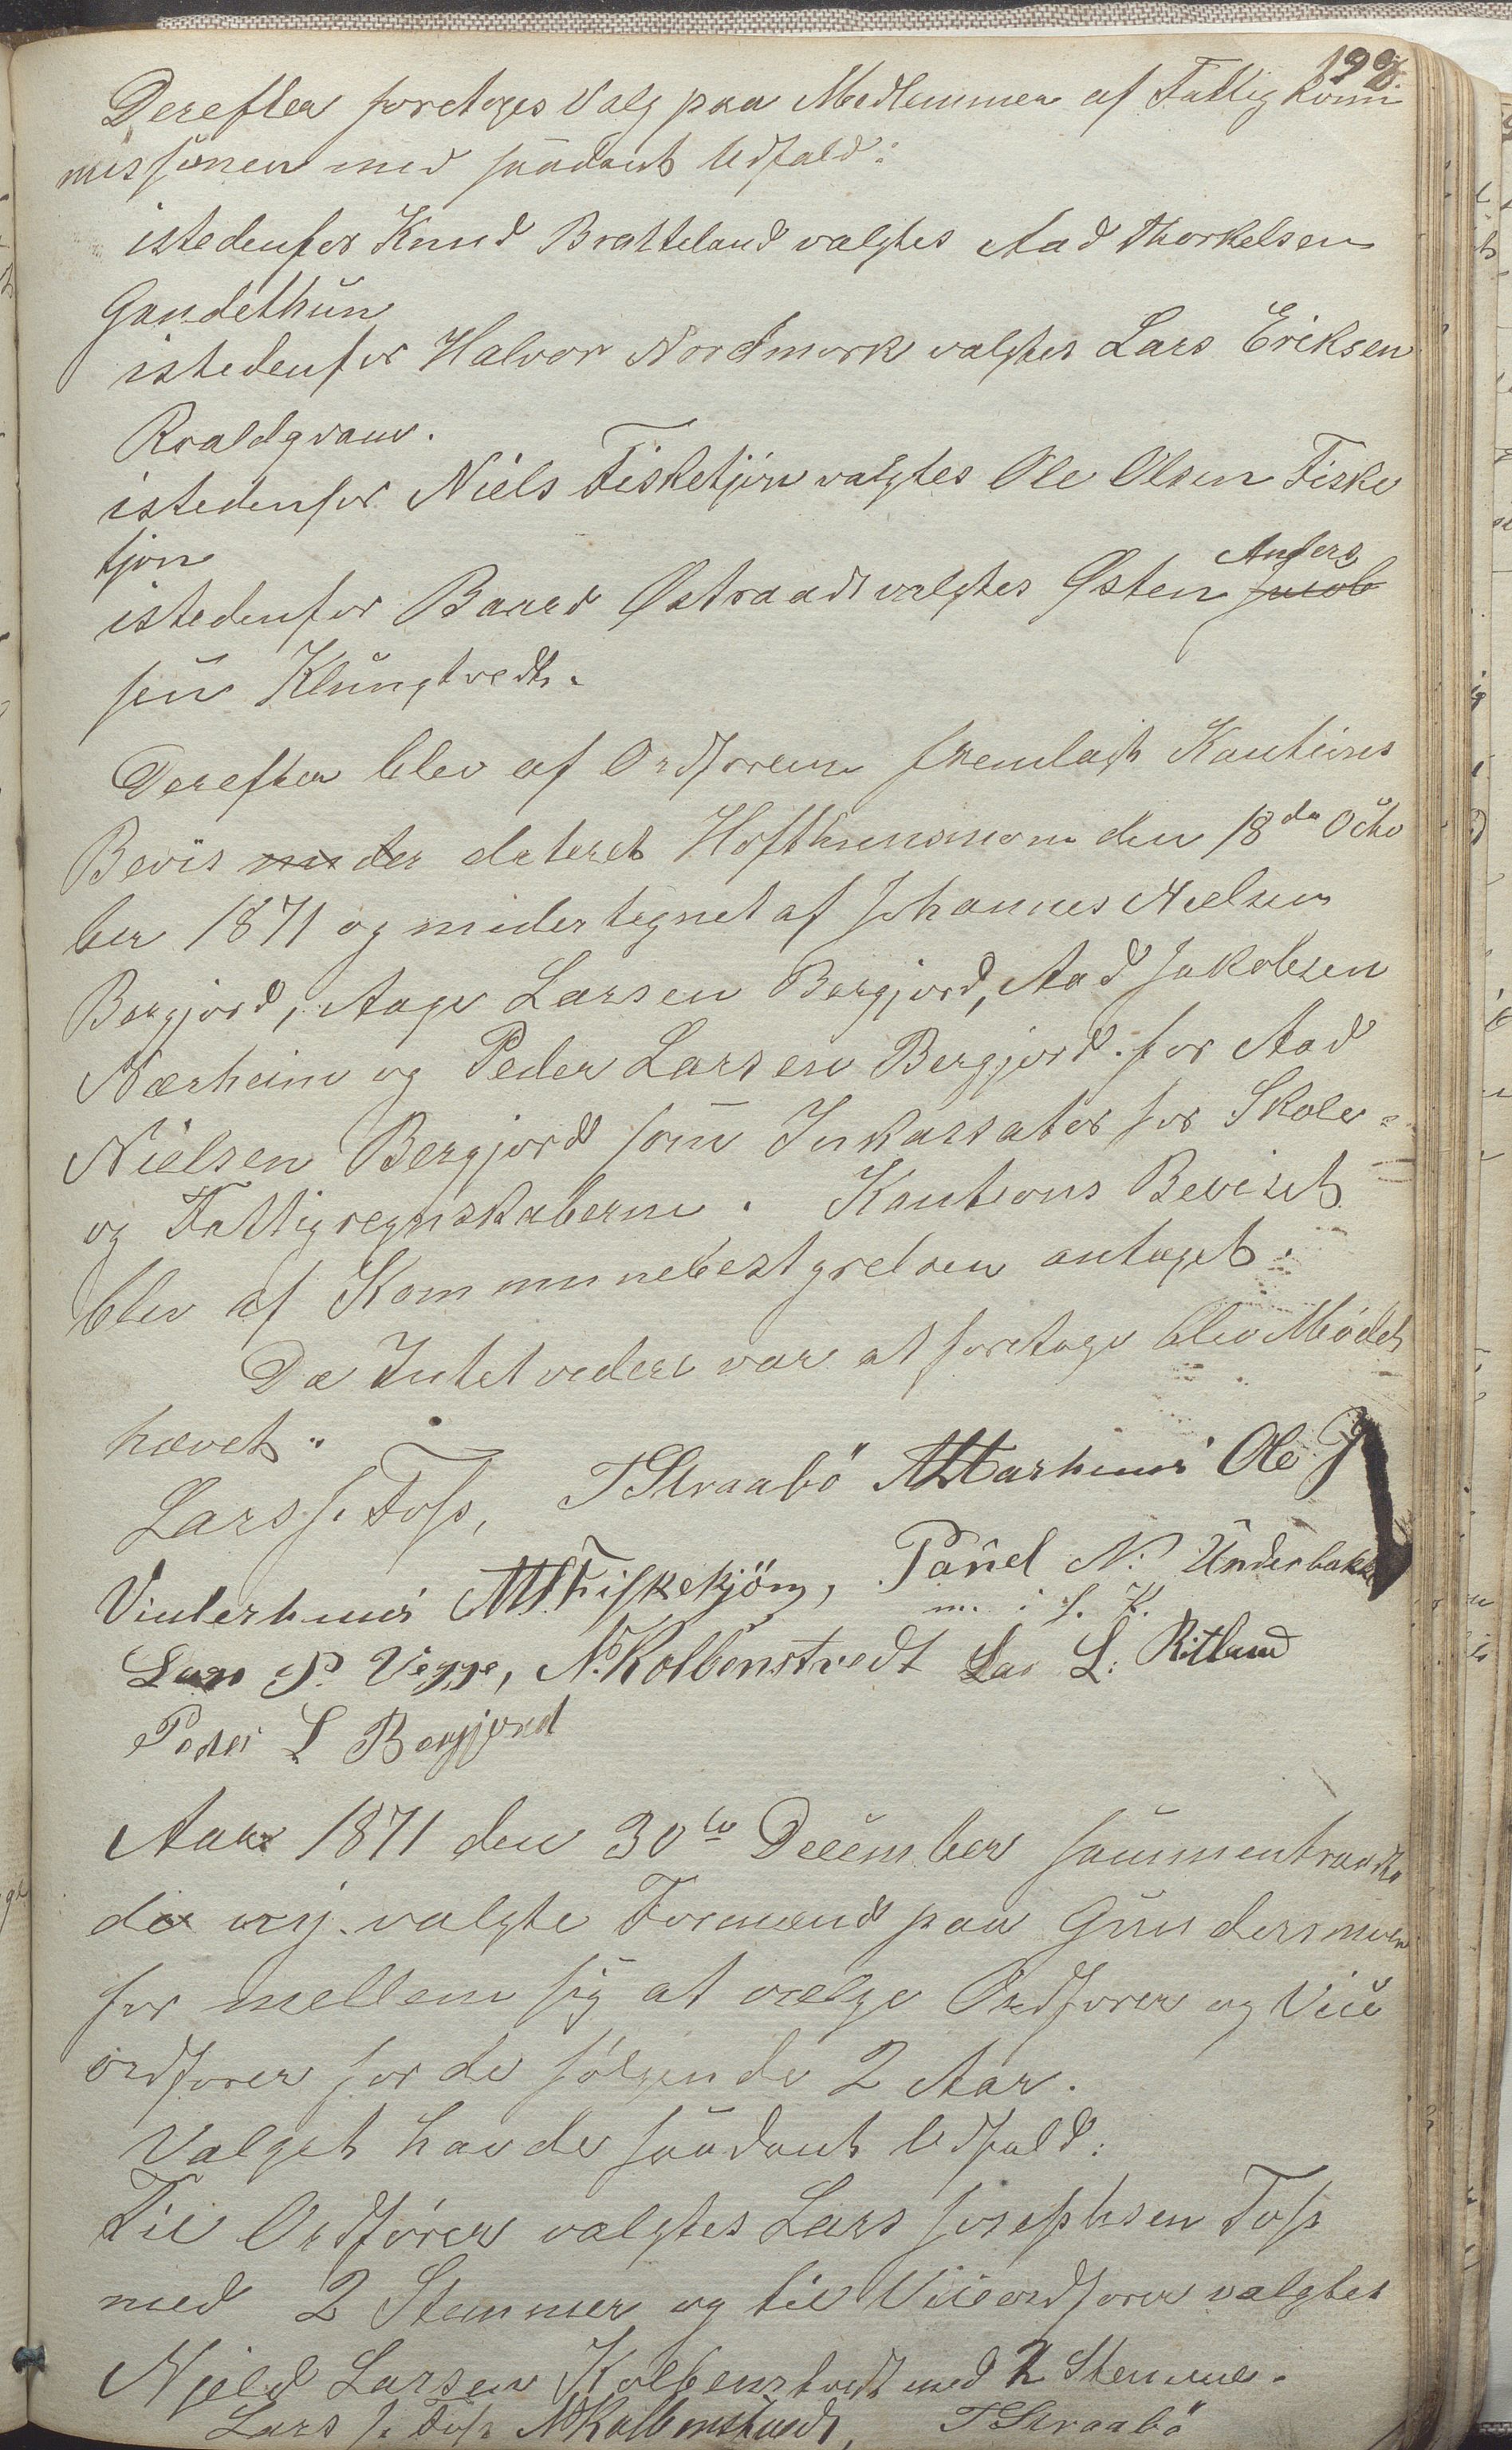 199
Derefter foretoges Valg paa Medlemmer af Fattigkom
missionen med saadant Udfald:
istedenfor Knud Bratteland valgtes Aad Thorkelsen
Gandethun
istedenfor Halvor Nordmork valgtes Lars Eriksen
Roaldqvam.
istedenfor Niels Fisketjön valgtes Ole Olsen Fiske
tjön
Anders
istedenfor Baard Østraadt valgtes Østen Jacob
sen Klungtvedt.
Derefter blev af Ordføreren fremlagt Kautions
Bevis under dateret Hofthunsmoen den 18de Octo
ber 1871 og undertegnet af Johannes Nielsen
Bergjord, Aage Larsen Bergjord, Aad Jakobsen
Nærheim og Peder Larsen Bergjord for Aad
Nielsen Bergjord som Inkassator for Skole-
og Fattigregnskaberne. Kautions Beviset
blev af Kommunebestyrelsen antaget.
Da Intet videre var at foretage blev Mødet
hævet.
Lars J. Foss, T Straabö Ole J
Vinterhuus Fiskekjön, Paüel N: Underbakke
m. i f. P.
Lars P. Vegge, N. Kolbenstvedt Lar L: Ritland
Peder L Bergjord
Aar 1871 den 30te December sammentraadte
de ny-valgte Formænd paa Gundersmoen
for mellem sig at vælge Ordfører og Vice
ordfører for de følgende 2 Aar.
Valget havde saadant Udfald:
Til Ordfører valgtes Lars Josephsen Foss
med 2 Stemmer og til Viceordfører valgtes
Njeld Larsen Kolbenstvedt med 2 Stemmer.
Lars J. Foss N Kolbenstvedt, T Straabö